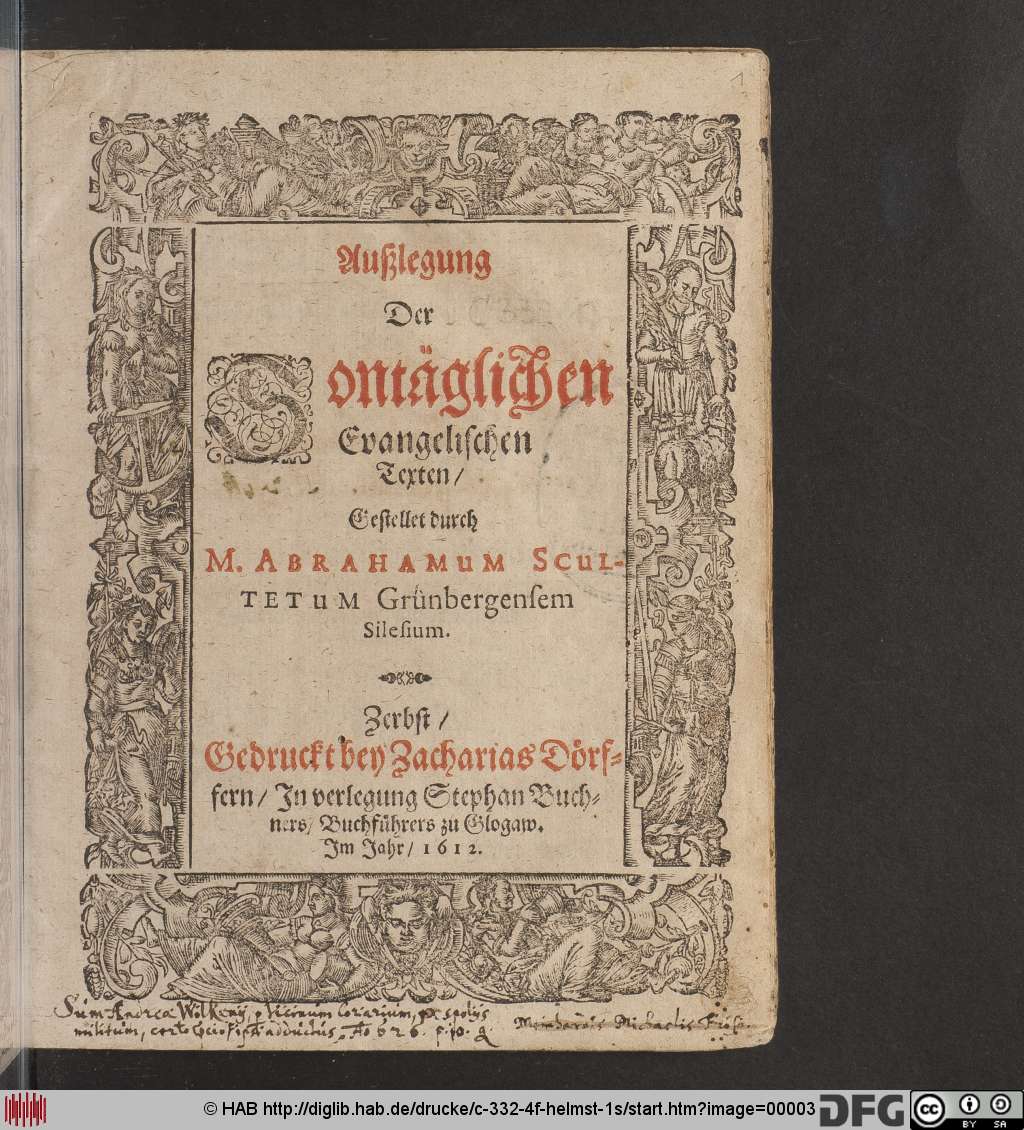 1
Außlegung
Der
Sontäglichen
Evangelischen
Texten/
Gestellet durch
M. ABRAHAMUM SCUL-
TETUM Grünbergensem
Silesium.
Zerbst/
Gedruckt bey Zacharias Dörf-
fern/ In verlegung Stephan Buch-
ners/ Buchführers zu Glogaw.
Im Jahr/ 1612.
Sum Andreæ Wilkenij, p vicinum
militum,
© HAB http://diglib.hab.de/drucke/c-332-4f-helmst-1s/start.htm?image=00003
DFG
cc BY SA